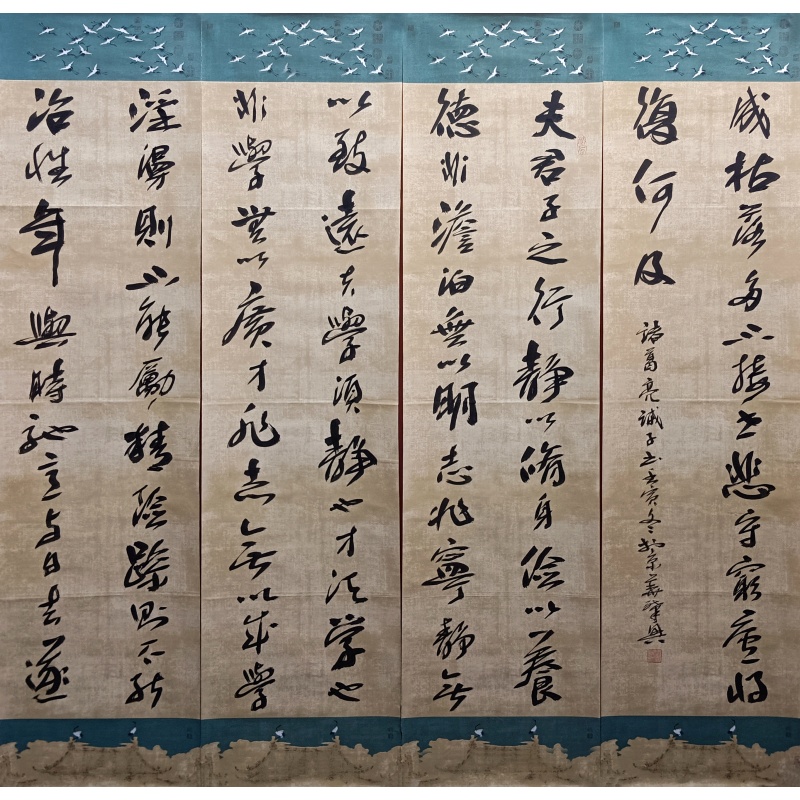 夫君子之行靜以脩身儉以養
德非澹泊無以明志非寧靜無
以致遠夫學須靜也才須学也
非學無以廣才非志無以成學
淫漫則不能勵精險躁則不能
冶性年與時馳意与日去遂
成枯落多不接世悲守窮廬將
復何及
諸葛亮誡子书壬寅冬於京華肇興